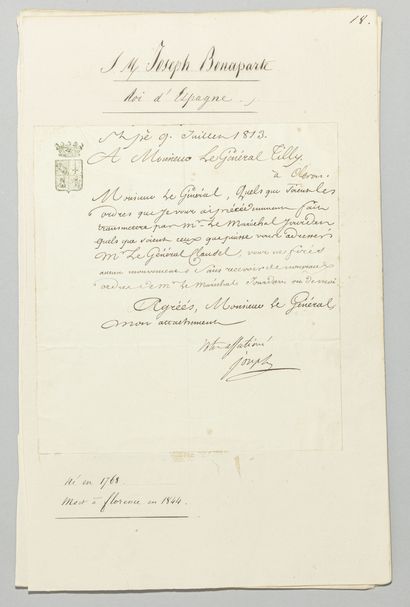 18.
S M Joseph Bonaparte
Roi d'Espagne
St pè 9. Juillet 1813.
A Monsieur Le Général Tilly.
à Oleron.
Monsieur Le Général, Quels que soient les
ordres que je vous ai précédemment fait
transmettre par Mr. Le Maréchal Jourdan
Quels que soient ceux que puisse vous adresser
Mr. Le Général Clausel, vous ne ferés
aucun mouvement sans recevoir de nouveaux
ordres de Mr. Le Maréchal Jourdan ou de moi
Agréés, Monsieur Le Général
mon attachement
Votre affectionné
Joseph
Né en 1768
Mort à florence en 1844.